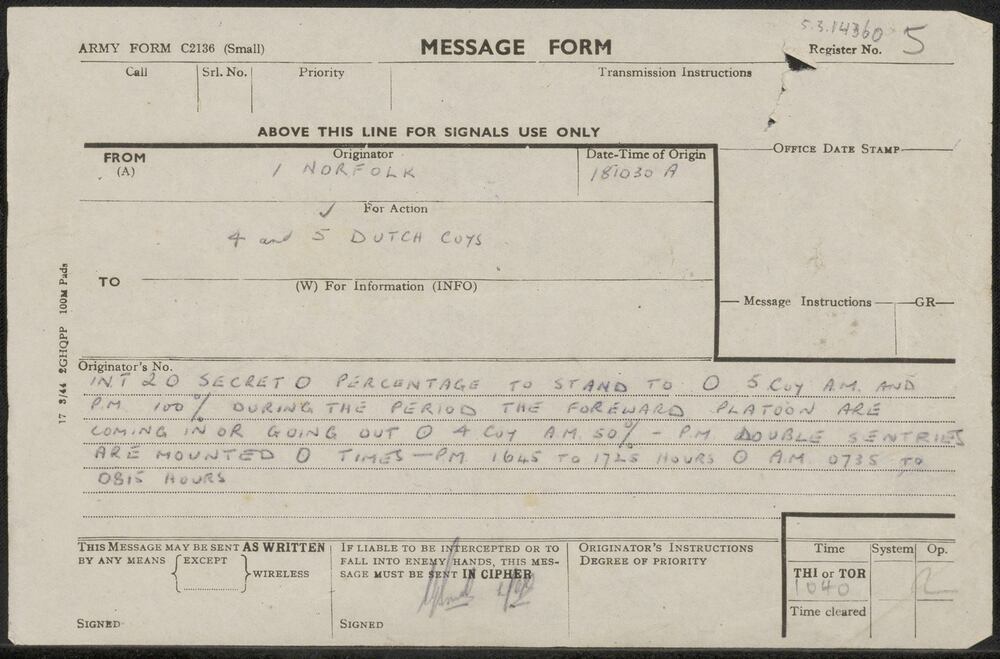 5.3.14360
ARMY FORM C2136 (Small)
MESSAGE FORM
Register No. 5
Call
Srl. No.
Priority
Transmission Instructions
ABOVE THIS LINE FOR SIGNALS USE ONLY
FROM
(A)
Originator
1 NORFOLK
Date-Time of Origin
181030 A
OFFICE DATE STAMP
For Action
4 and 5 DUTCH COYS
TO
(W) For Information (INFO)
Message Instructions
GR
17 3/44 2GHQPP 100M Pads
Originator's No.
INT 20 SECRET O PERCENTAGE TO STAND TO O 5 COY A.M. AND
P.M. 100% DURING THE PERIOD THE FOREWARD PLATOON ARE
COMING IN OR GOING OUT O 4 COY A.M. 50% - P.M DOUBLE SENTRIES
ARE MOUNTED O TIMES - PM 1645 TO 1725 HOURS O A.M. 0735 TO
0815 HOURS
THIS MESSAGE MAY BE SENT AS WRITTEN
BY ANY MEANS
EXCEPT
WIRELESS
SIGNED
IF LIABLE TO BE INTERCEPTED OR TO
FALL INTO ENEMY HANDS, THIS MES-
SAGE MUST BE SENT IN CIPHER
SIGNED
ORIGINATOR'S INSTRUCTIONS
DEGREE OF PRIORITY
Time
System
Op.
THI or TOR
1040
Time cleared